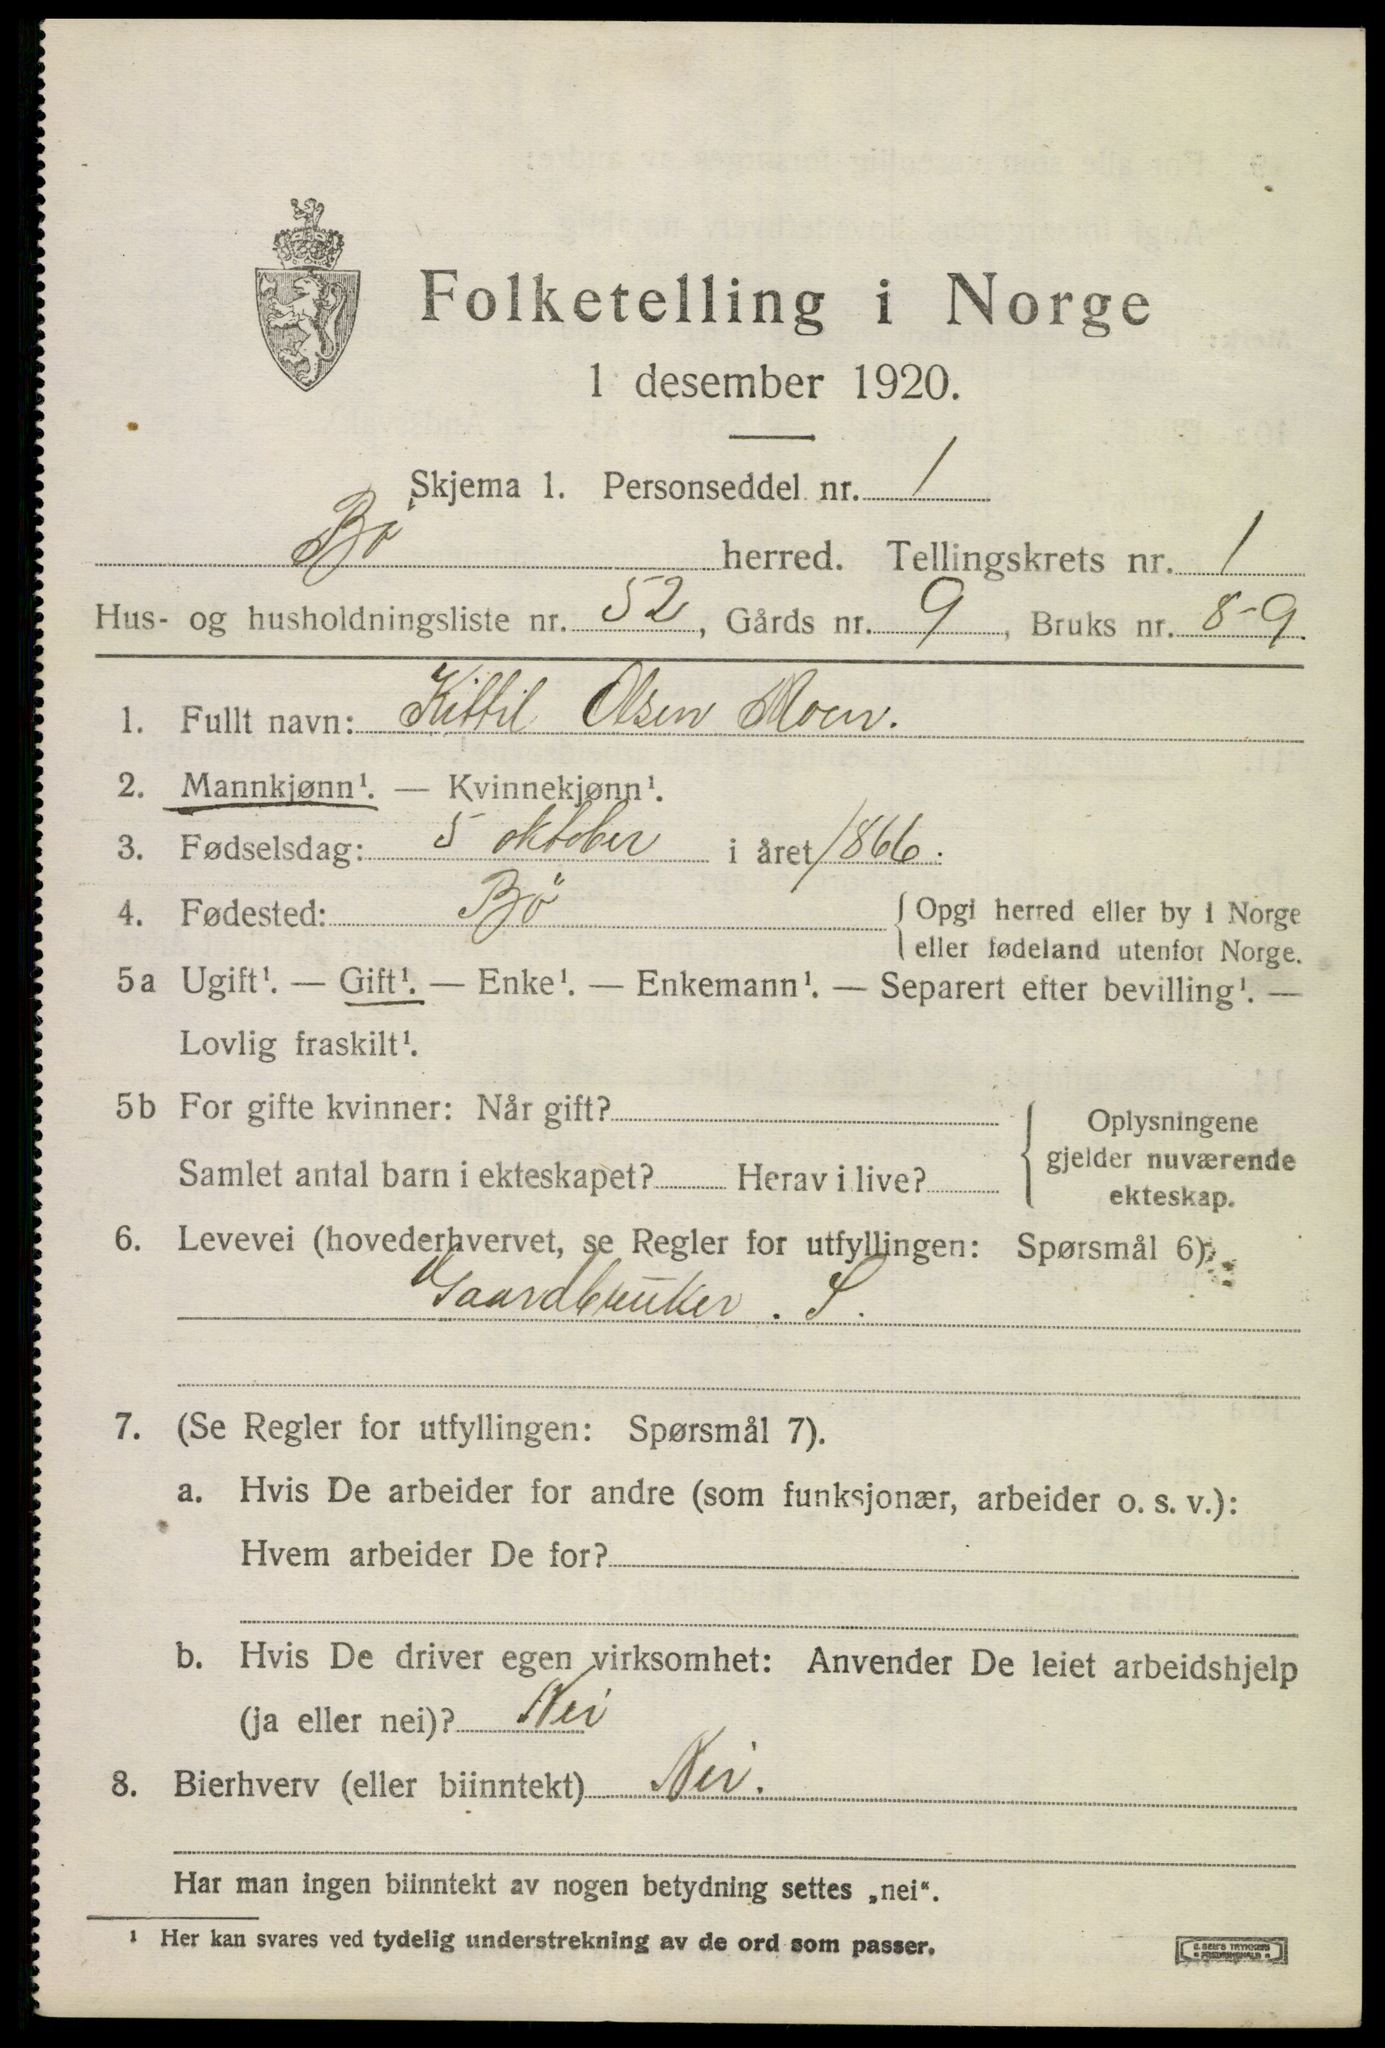 Folketelling i Norge
1 desember 1920.
Skjema 1. Personseddel nr. 1
Bö herred. Tellingskrets nr. 1
Hus- og husholdningsliste nr. 52, Gårds nr. 9, Bruks nr. 8-9.
1. Fullt navn: Kittil Olsen Moen.
2. Mannkjønn¹. — Kvinnekjønn¹.
3. Fødselsdag: 5 oktober i året 1866.
4. Fødested: Bö { Opgi herred eller by i Norge
eller fødeland utenfor Norge.
5a Ugift¹. — Gift¹. — Enke¹. — Enkemann¹. — Separert efter bevilling¹. —
Lovlig fraskilt¹.
5b For gifte kvinner: Når gift? { Oplysningene
gjelder nuværende
Samlet antal barn i ekteskapet? Herav i live?
ekteskap.
6. Levevei (hovederhvervet, se Regler for utfyllingen: Spørsmål 6):
Gaardbruker. S.
7. (Se Regler for utfyllingen: Spørsmål 7).
a. Hvis De arbeider for andre (som funksjonær, arbeider o. s. v.):
Hvem arbeider De for?
b. Hvis De driver egen virksomhet: Anvender De leiet arbeidshjelp
(ja eller nei)? Nei
8. Bierhverv (eller biinntekt) Nei.
Har man ingen biinntekt av nogen betydning settes „nei“.
¹ Her kan svares ved tydelig understrekning av de ord som passer.